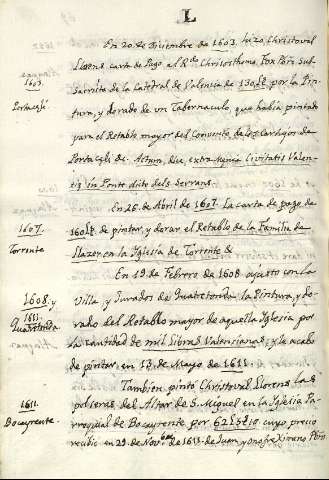 L
En 20 de Diciembre de 1603. hizo Christoval
Llorens carta de Pago al R.do Chrisosthomo Fox Pbro Sub
Sacrista de la Catedral de Valencia de 130 por la Pin
tura, y dorado de un Tabernaculo, que havia pintado
para el Retablo mayor del Convento de los clerigos de
Portaceli de. Actum, dice extra menia Civitatis Valen
tiæ in Ponte dicto dels Serrans.
1603.
Portaceli
En 26 de Abril de 1607. la carta de pago de
160 de pintar, y dorar el Retablo de la Familia de
Mazer en la Iglesia de Torrente &
1607.
Torrente
En 19 de Febrero de 1608 ajusto con la
Villa y Jurados de Quatretonda la Pintura, y do-
rado del Retablo mayor de aquella Iglesia por
la cantidad de mil Libras Valencianas, y le acabo
de pintar, en 12 de Mayo de 1611.
1608. y
1611.
Quatretonda
Tambien pintó Christoval Llorens las
polseras del Altar de S. Miguel en la Iglesia Pa-
rroquial de Bocayrente por 62 cuyo precio
recibio en 29 de Nov.bre de 1611. de Juan y Onofre Ximeno Pbro
1611.
Bocayrente.